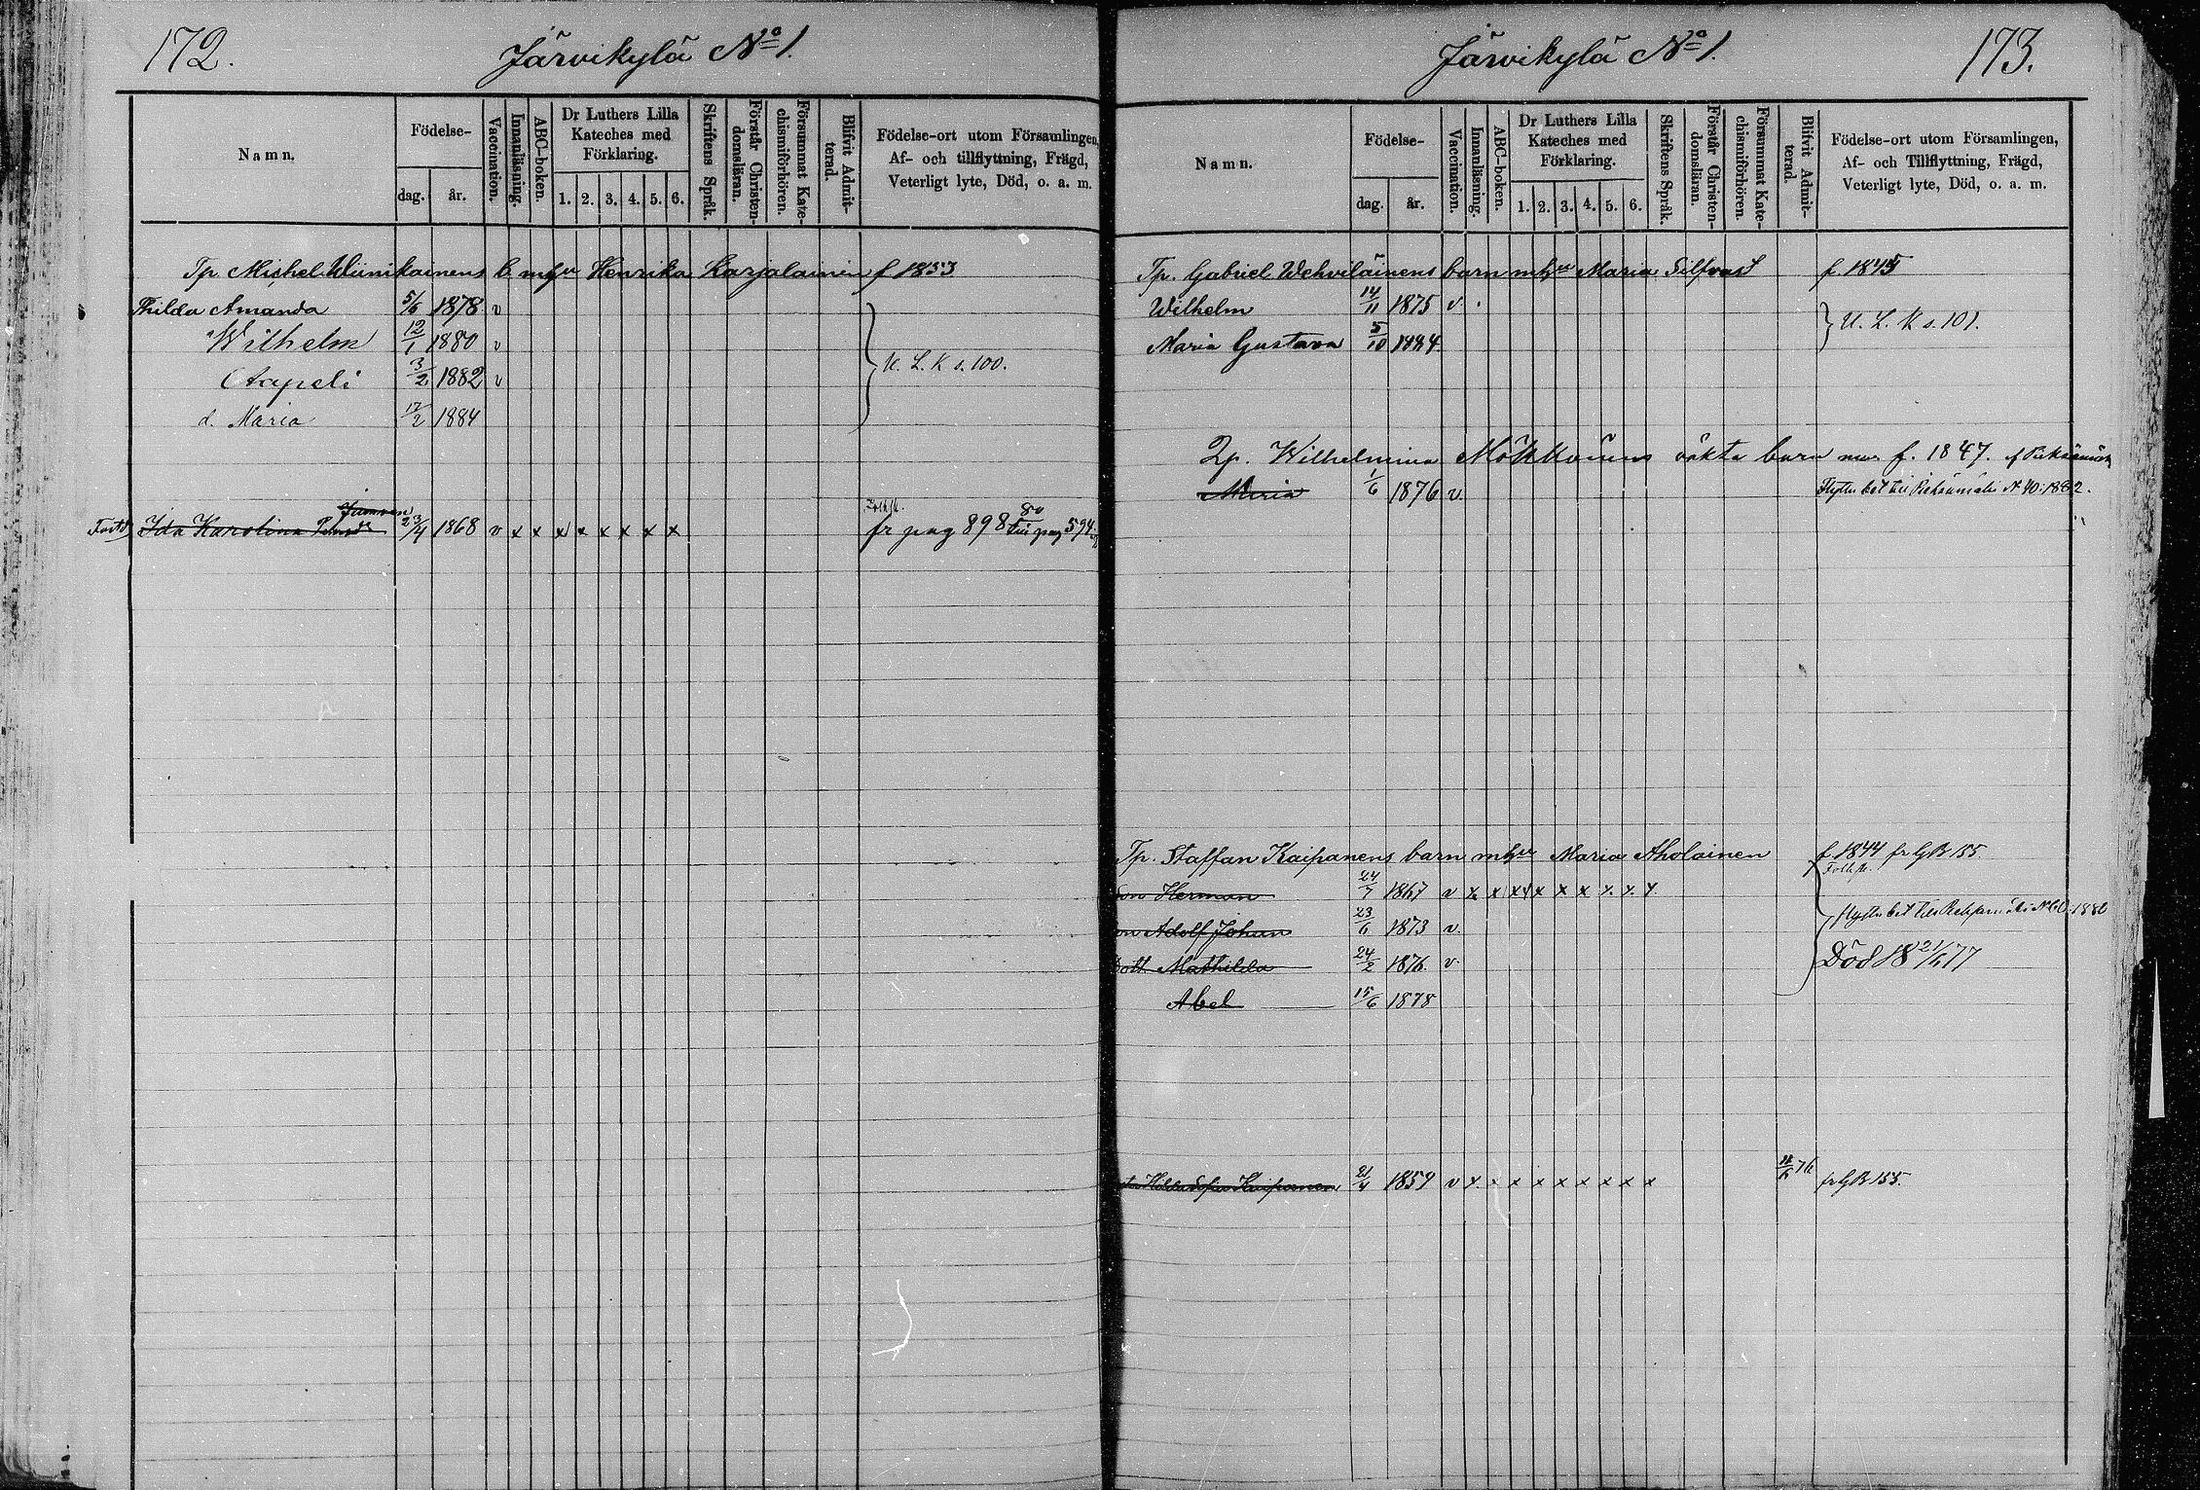 172.
Järvikylä No 1.
Namn.
Födelse-
dag.
år.
Vaccination.
Innanläsning.
ABC-boken.
Dr Luthers Lilla
Kateches med
Förklaring.
1. 2. 3. 4. 5. 6.
Skriftens Språk.
Förstår Christen-
domsläran.
Försummat Kate-
chismiförhören.
Blifvit Admit-
terad.
Födelse-ort utom Församlingen,
Af- och tillflyttning, Frägd,
Veterligt lyte, Död, o. a. m.
Tp. Michel Wiinikainens b. mhu Henrika Karjalainen f 1833
Hilda Amanda 5/6 1878 v
Wilhelm 12/1 1880 v
Aapeli 3/2 1882 v
U. L. K s. 100.
d. Maria 17/2 1884
Ida Karolina 23/4 1868 v x x x x x x x x fr pag 898 80 Till pag 594
Järvikylä No 1.
173.
Namn.
Födelse-
dag.
år.
Vaccination.
Innanläsning.
ABC-boken.
Dr Luthers Lilla
Kateches med
Förklaring.
1. 2. 3. 4. 5. 6.
Skriftens Språk.
Förstår Christen-
domsläran.
Försummat Kate-
chismiförhören.
Blifvit Admit-
terad.
Födelse-ort utom Församlingen,
Af- och Tillflyttning, Frägd,
Veterligt lyte, Död, o. a. m.
Tp. Gabriel Wehviläinens barn mhu Maria Silfvast f. 1845
Wilhelm 14/11 1875 v.
U. L. K s. 101.
Maria Gustava 5/10 1884
Wilhelmina Mökköinens oäkta barn f. 1847.
Maria 1/6 1876 v. No 40. 1882.
Tp. Staffan Kaipanens barn mhu Maria Aholainen f. 1844 fr GB 155.
son Herman 24/7 1867 v x x x x x x x x x
Adolf Johan 23/6 1873 v.
Dott. Mathilda 24/2 1876 v. Död 18 21/6 77
Abel 15/6 1878
Kaipanen 21/4 1859 v x x x x x x x x 76 fr GB 155.